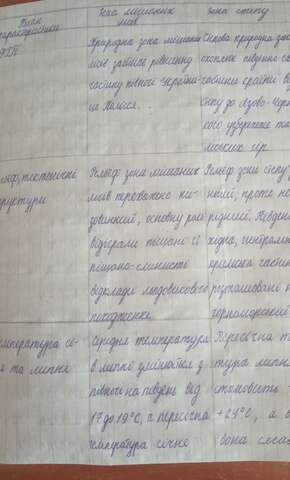 План
характеристики
ФГП
Зона мішаних
лісів
Зона степу
Природна зона мішаних
лісів займає рівнинну
частину півночі України-
це Полісся.
Степова природна зона
охоплює південно-сх
частини країни в
степу до Азово-Чорн
кого узбережжя та
мських гір.
Рельєф, тектонічні
структури
Рельєф зони мішаних
лісів переважно ни-
зовинний, основну роль
відіграли піщані й
піщано-глинисті
відклади льодовикового
походження.
Рельєф зони степу
ний, проте не
рідний. Півден
хідна, централь
кримська части
розташовані н
чорноморській
Температура сі-
чня та липня
Середня температура
в липні змінюється з
півночі на південь від
17 до 19°C, а пересічна
температура січня
Пересічна т
тура липня
становить
+24°C, а
вона сяга